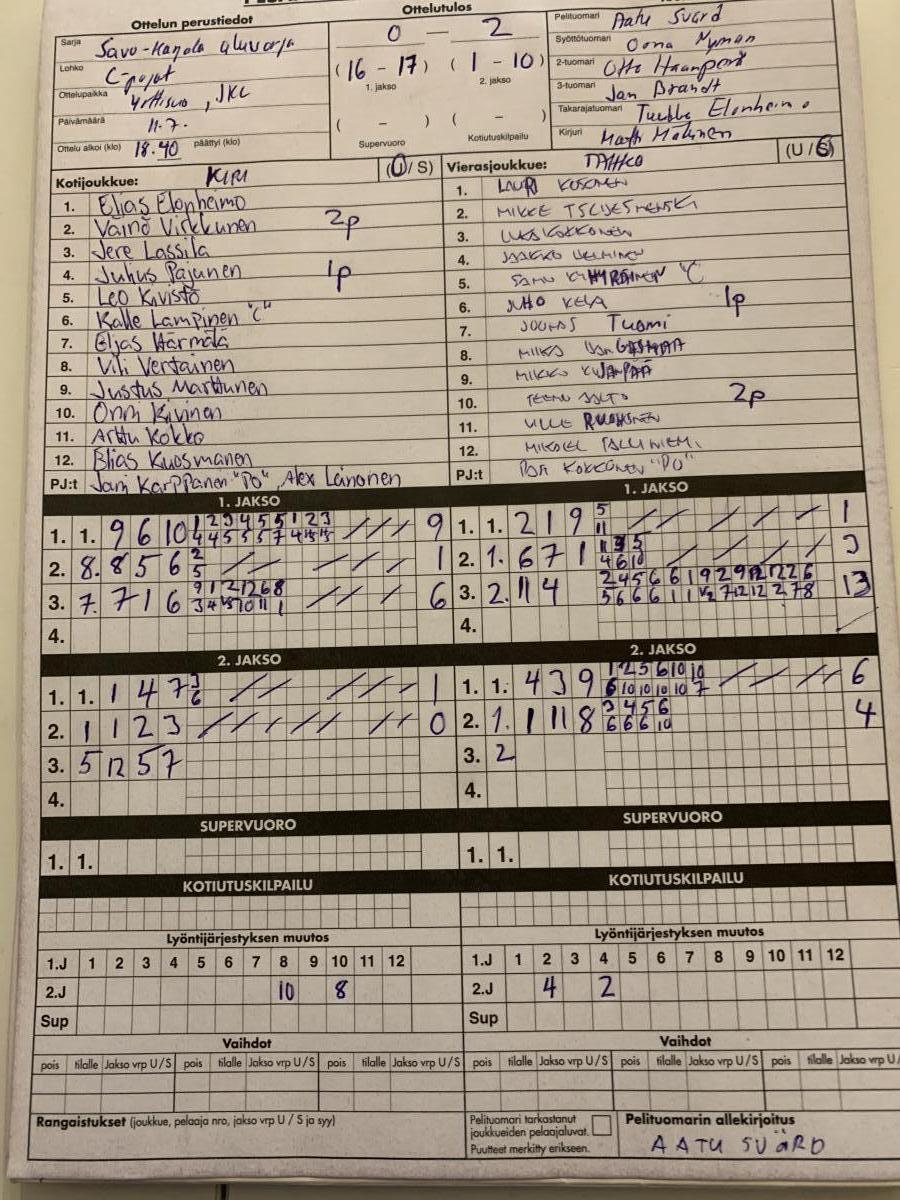 Ottelun perustiedot
Ottelutulos
Sarja Savo-Karjala aluesarja
Lohko C-pojat
Ottelupaikka , JKL
Päivämäärä 11.7.
Ottelu alkoi (klo) 18.40 päättyi (klo)
0 — 2
(16 - 17) (1 - 10)
1. jakso 2. jakso
( - ) ( - )
Supervuoro Kotiutuskilpailu
Pelituomari Aatu Svärd
Syöttötuomari Oona Nyman
2-tuomari Otto
3-tuomari Jan Brandt
Takarajatuomari Tuukka Elonheimo
Kirjuri Matti
Kotijoukkue: KIRI (U/S)
1. Elias Elonheimo
2. Väinö Virkkunen 2p
3. Jere Lassila
4. Julius Pajunen 1p
5. Leo Kivistö
6. Kalle Lampinen "C"
7. Eljas Härmälä
8. Vili Vertainen
9. Justus Marttunen
10. Onni Kivinen
11. Arttu Kokko
12. Elias Kuosmanen
PJ:t Jani Karppanen "PO", Alex Länonen
Vierasjoukkue: TAHKO (U/S)
1. LAURI KOSONEN
2. MIKKE
3. KOKKONEN
4. JAAKKO
5. SAMU "C"
6. JUHO KELA 1p
7. JOONAS Tuomi
8.
9. MIKKO
10. TEEMU AALTO 2p
11. VILLE
12. MIKAEL TALLINIEMI
PJ:t KOKKONEN "PO"
1. JAKSO
1. 1. 9 6 10 1 2 3 4 5 5 1 2 3 9
4 4 5 5 5 7 4
2. 8. 8 5 6 2 1
5
3. 7. 7 1 6 9 1 2 12 12 6 8 6
3 4 10 11 1
4.
1. JAKSO
1. 1. 2 1 9 5 1
11
2. 1. 6 7 1 1 3 5 3
4 6 10
3. 2. 11 4 2 4 5 6 6 1 9 2 9 12 12 2 6 13
5 6 6 6 1 1 7 12 12 2 7 8
4.
2. JAKSO
1. 1. 1 4 7 3 1
6
2. 1 1 2 3 0
3. 5 12 5 7
4.
2. JAKSO
1. 1. 4 3 9 1 2 5 6 10 10 6
6 10 10 10 10 7
2. 1. 1 11 8 3 4 5 6 4
6 6 6 10
3. 2
4.
SUPERVUORO
1. 1.
SUPERVUORO
1. 1.
KOTIUTUSKILPAILU
KOTIUTUSKILPAILU
Lyöntijärjestyksen muutos
1.J 1 2 3 4 5 6 7 8 9 10 11 12
2.J 10 8
Sup
Lyöntijärjestyksen muutos
1.J 1 2 3 4 5 6 7 8 9 10 11 12
2.J 4 2
Sup
Vaihdot
pois tilalle Jakso vrp U/S pois tilalle Jakso vrp U/S pois tilalle Jakso vrp U/S
Vaihdot
pois tilalle Jakso vrp U/S pois tilalle Jakso vrp U/S pois tilalle Jakso vrp U/
Rangaistukset (joukkue, pelaaja nro, jakso vrp U / S ja syy)
Pelituomari tarkastanut
joukkueiden pelaajaluvat.
Puutteet merkitty erikseen.
Pelituomarin allekirjoitus
AATU SVÄRD